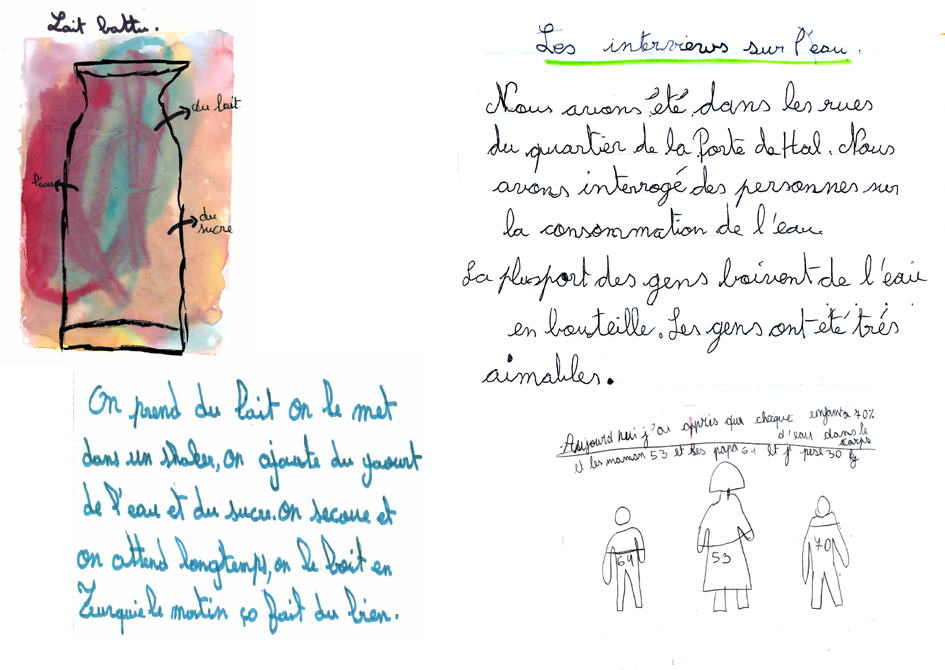 Lait battu.
du lait
l'eau
du
sucre
On prend du lait on le met
dans un shaker, on ajoute du yaourt
de l'eau et du sucre. On secoue et
on attend longtemps, on le boit en
Turquie le matin ço fait du bien.
Les interviews sur l'eau.
Nous avons été dans les rues
du quartier de la Porte de Hal. Nous
avons interrogé des personnes sur
la consommation de l'eau.
La plusport des gens boivent de l'eau
en bouteille. Les gens ont été trés
aimables.
Aujourd'hui j'ai appris que chaque enfant a 70%
d'eau dans le
corps
et les maman 53 et les papa 64 et je pese 30 kg
64
53
70